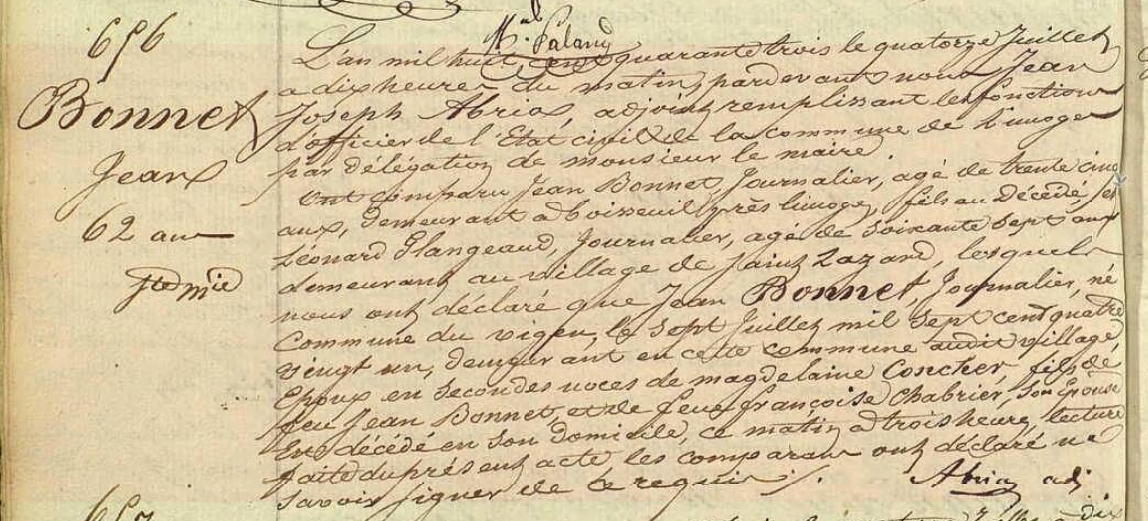 656
Bonnet
Jean
62 ans
L'an mil huit cent quarante trois le quatorze Juillet
a dix heures du matin, pardevant nous Jean
Joseph Abria, adjoint remplissant les fonctions
d'officier de l'Etat civil de la commune de Limoges
par délégation de monsieur le maire.
Ont comparu Jean Bonnet, Journalier, agé de trente cinq
ans, demeurant a boisseuil près limoges, fils au Décédé, et
Léonard Glangeaud, Journalier, agé de soixante sept ans
demeurant au village de Saint Lazard, lesquels
nous ont déclaré que Jean Bonnet, Journalier, né
Commune du vigen, le sept Juillet mil sept cent quatre
vingt un, demeurant en cette commune audit village,
Epoux en secondes noces de magdelaine Concher, fils de
feu Jean Bonnet, et de feue françoise Chabrier, son Epouse
Est décédé en son domicile, ce matin a trois heures, lecture
faite du présent acte, les comparans ont déclaré ne
savoir signer de ce requis /.
Abria adj
657